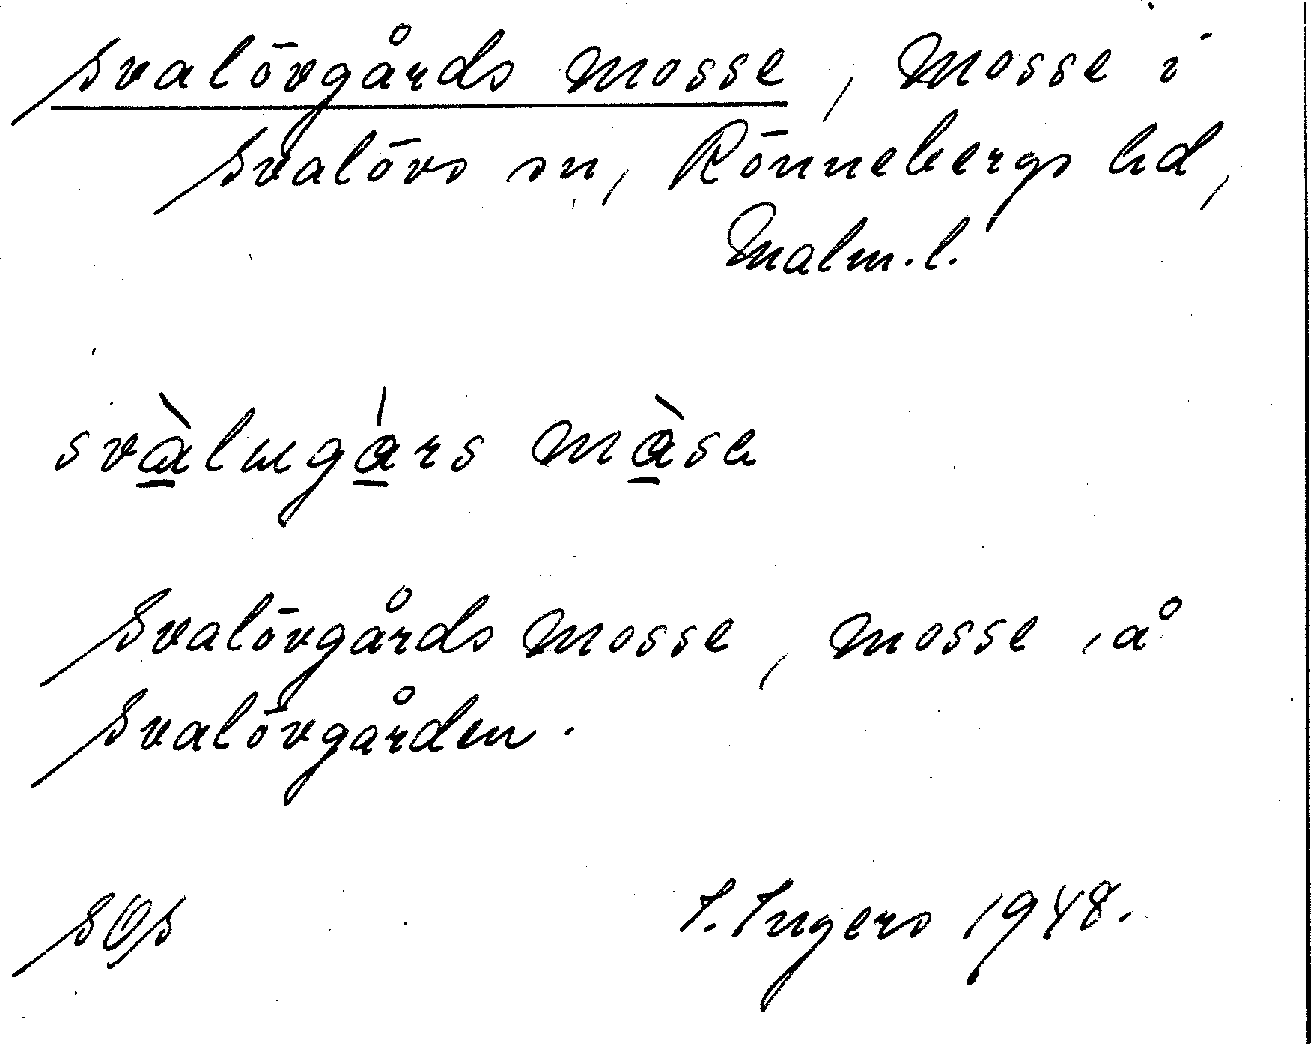 Svalövgårds mosse, mosse i
Svalövs sn, Rönnebergs hd,
Malm.l.
svàlugárs màsa
Svalövgårds mosse, mosse å
Svalövgården.
I. Ingers 1948.